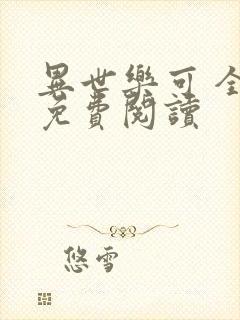 異世樂可 全
免費閱讀
悠雪